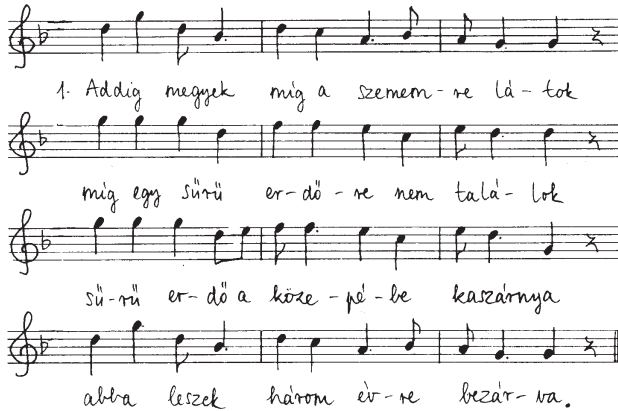 1. Addig megyek míg a szemem-re lá-tok
míg egy sűrű er-dő-re nem talá-lok
sű-rű er-dő a köze-pé-be kaszárnya
abba leszek három év-re bezár-va.